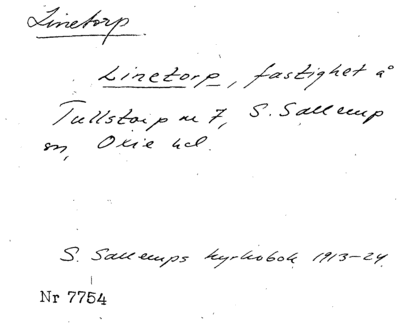 Linetorp
Linetorp, fastighet å
Tullstorp nr 7, S. Sallerup
sn, Oxie hd.
S. Sallerups kyrkobok 1913-24
Nr 7754